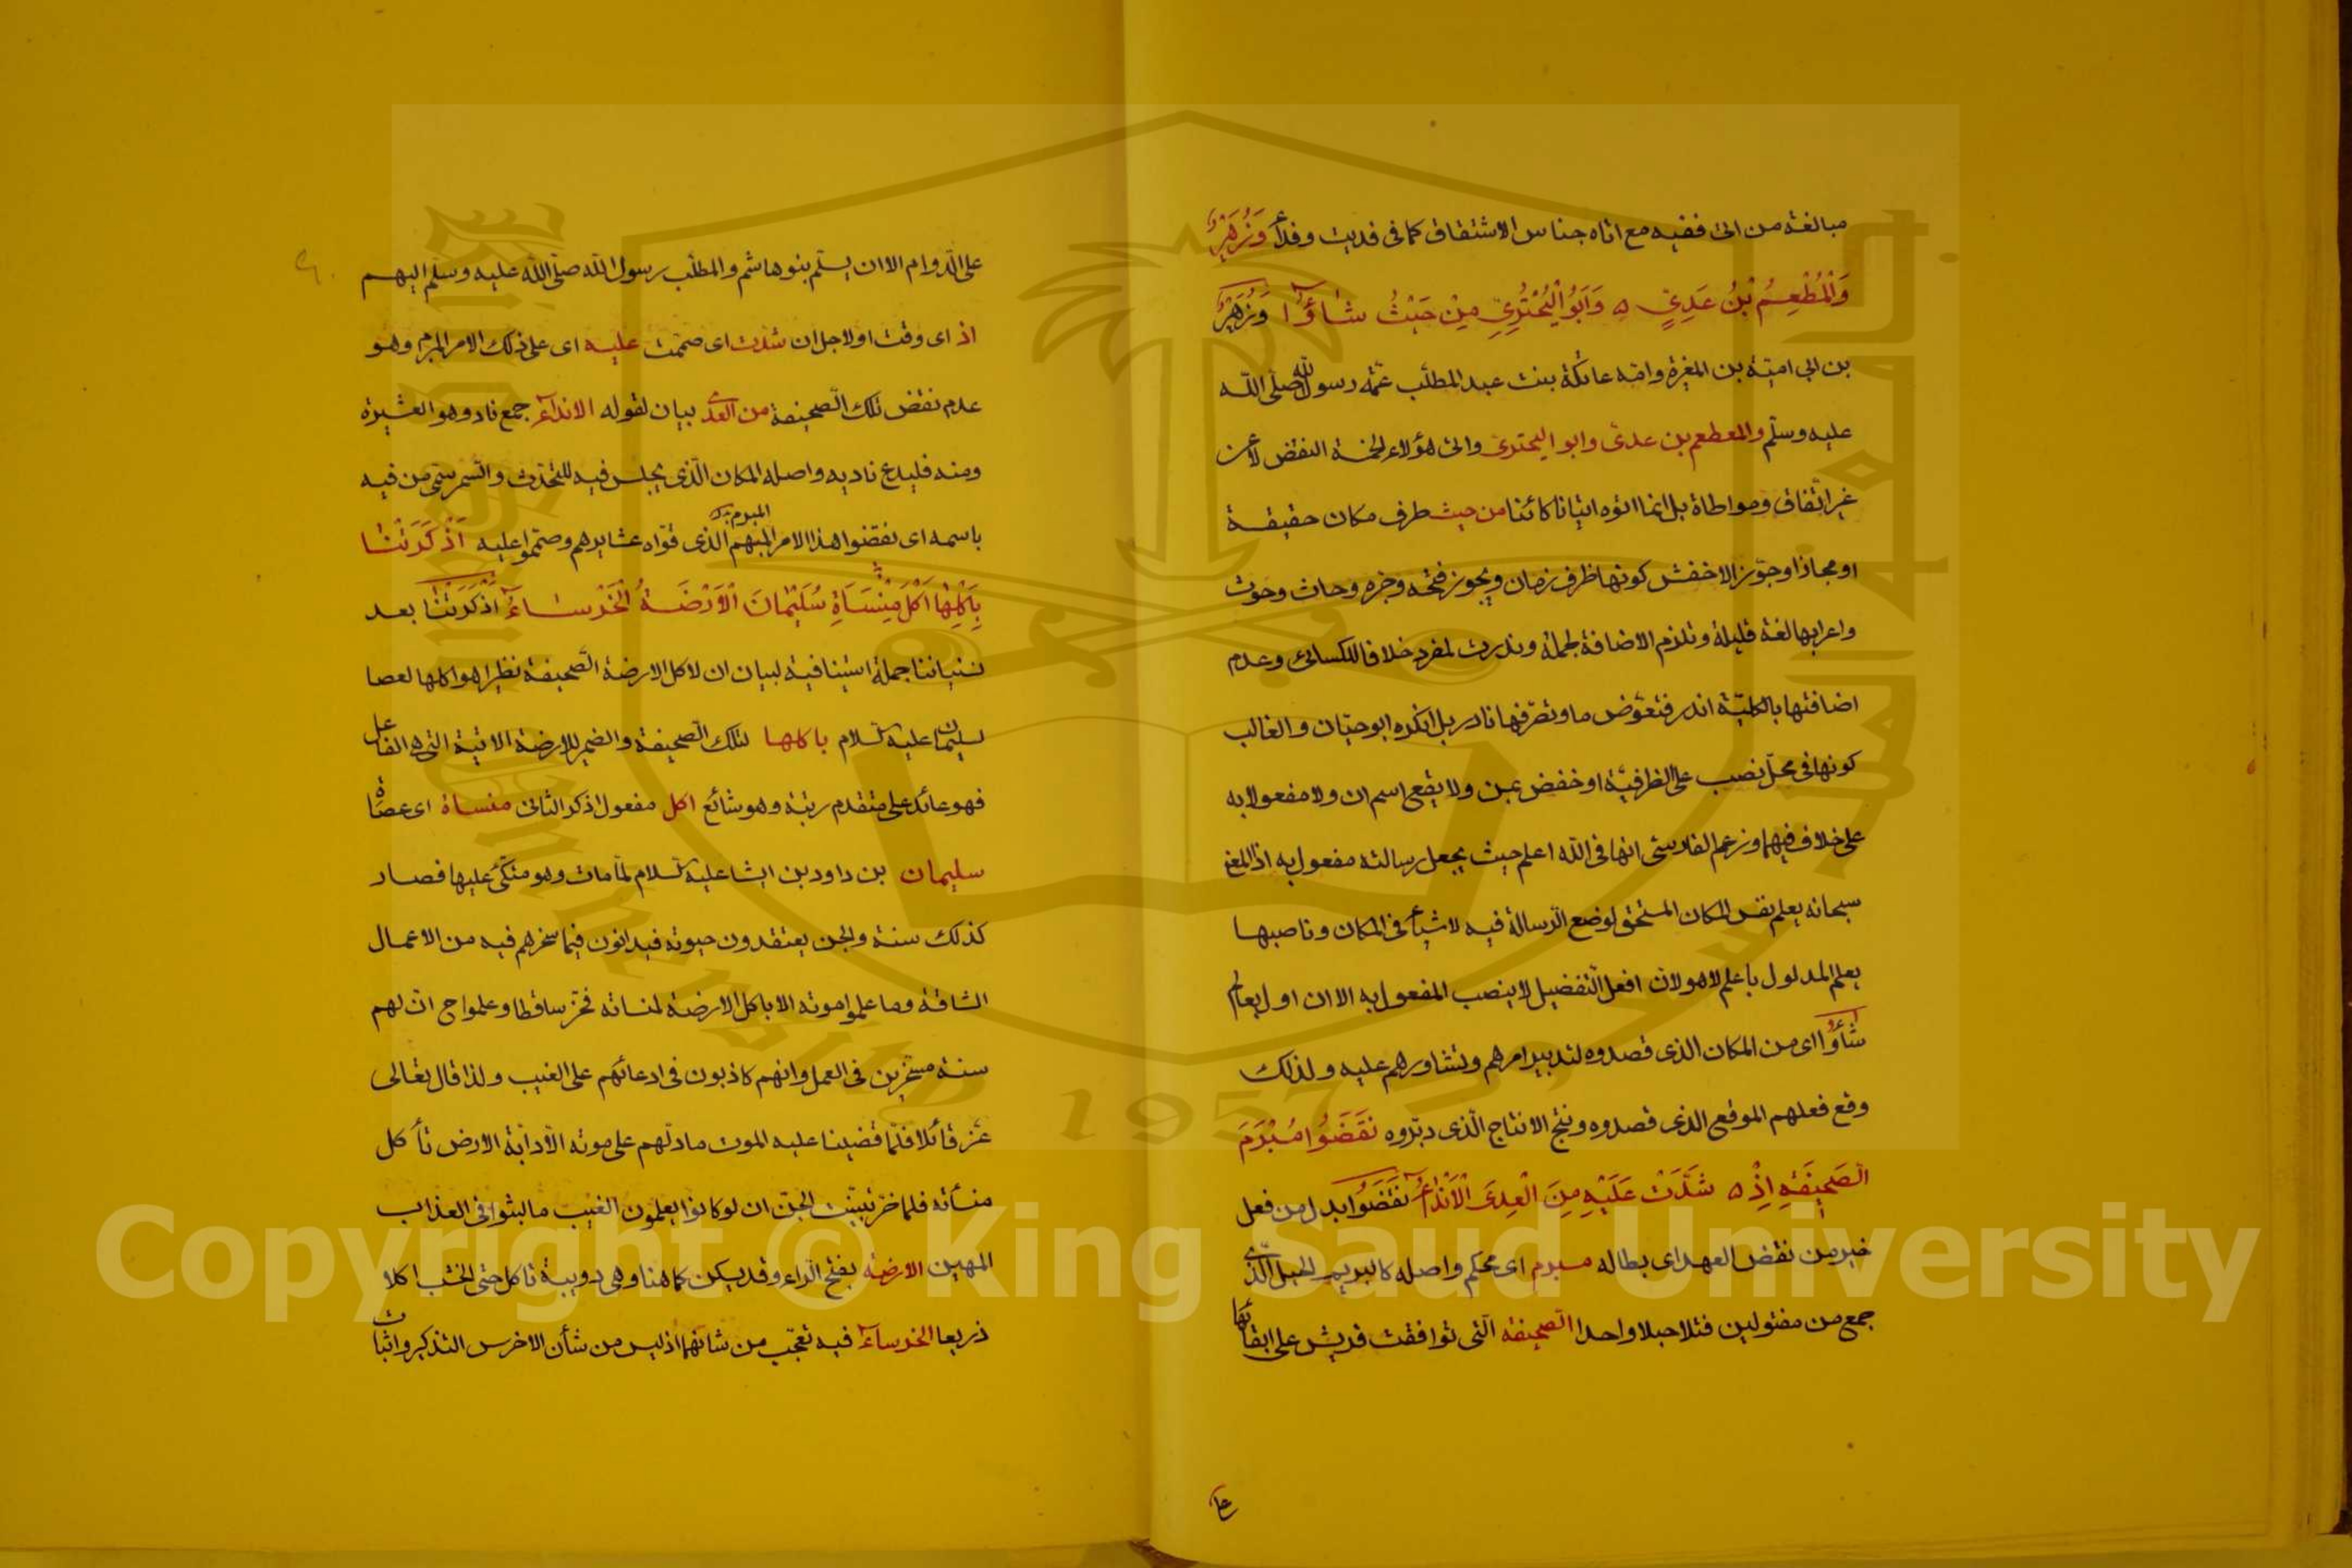 مبالغة من اتى ففيه مع اتاه جناس الاشتقاق كما فى فديت وفداء وَزُهَيْرٌ
وَالْمُطْعِمُ بْنُ عَدِيٍّ ه وَاَبُو الْبُحْتُرِيِّ مِنْ حَيْثُ شَاؤُا وَزُهَيْرٌ
بن ابي امية بن المغيرة وامه عاتكة بنت عبد المطلب عمة رسول الله صلى الله
عليه وسلم والمطعم بن عدى وابو البحترى واتى هؤلاء الخمسة النقض لا عن
غير اتفاق ومواطاة بل انما اتوه اتيانا كائنا من حيث ظرف مكان حقيقة
او مجازا وجوز الاخفش كونها ظرف زمان ويجوز فتحه وجره وحاث وحوث
واعرابها لغة قليلة وتلزم الاضافة لجملة وندرت لمفرد خلافا للكسائى وعدم
اضافتها بالكلية اندر فتعوض ما وتصرفها نادر بل انكره ابو حيان والغالب
كونها فى محل نصب على الظرفية او خفض بمن ولا يقع اسم ان ولا مفعولا به
على خلاف فيهما وزعم الفارسى انها فى الله اعلم حيث يجعل رسالته مفعول به اذ المعنى
سبحانه يعلم نفس المكان المستحق لوضع الرسالة فيه لا شيأ فى المكان وناصبها
يعلم المدلول باعلم لا هو لان افعل التفضيل لا ينصب المفعول به الا ان اول بعالم
شاؤا اى من المكان الذى قصدوه لتدبير امرهم وتشاورهم عليه ولذلك
وقع فعلهم الموقع الذى قصدوه ونتج الانتاج الذى دبروه نَقَضُوا مُبْرَمَ
الصَّحِيفَةِ اِذْ ه شَدَّتْ عَلَيْهِ مِنَ الْعِدَى الْاَنْدَاءُ نَقَضُوا بدل من فعل
خير من نقض العهد اى بطاله مبرم اى محكم واصله كالبريم الحبل الذى
جمع من مفتولين فتلا حبلا واحدا الصحيفة التى توافقت قريش على ابقائها
على
على الدوام الا ان يسلم بنو هاشم والمطلب رسول الله صلى الله عليه وسلم اليهم
اذ اى وقت او لاجل ان شدت اى صممت عليه اى على ذلك الامر المبرم وهو
عدم نقض تلك الصحيفة من العدى بيان لقوله الانداء جمع ناد وهو العشيرة
ومنه فليدع ناديه واصله المكان الذى يجلس فيه للتحدث والسمر سمى من فيه
باسمه اى نقضوا هذا الامر المبهم المبرم الذى قواه عشايرهم وصمموا عليه اَذْكَرَتْنَا
بِاَكْلِهَا اَكْلَ مِنْسَاَةِ سُلَيْمَانَ الْاَرْضَةُ الْخَرْسَاءُ اذكرتنا بعد
نسياننا جملة استينافية لبيان ان لاكل الارضة الصحيفة نظيرا هو اكلها لعصا
سليمان عليه السلام باكلها لتلك الصحيفة والضمير للارضة الاتية التى هى الفاعل
فهو عائد على متقدم رتبة وهو شائع اكل مفعول اذكر الثانى منساة اى عصاة
سليمان بن داود بن ايشا عليه السلام لما مات وهو متكئ عليها فصار
كذلك سنة والجن يعتقدون حيوته فيدانون فيما سخرهم فيه من الاعمال
الشاقة وما علموا موته الا باكل الارضة لمنساته فخر ساقطا وعلموا ح ان لهم
سنة مسخرين فى العمل وانهم كاذبون فى ادعائهم على الغيب ولذا قال تعالى
عز قائلا فلما قضينا عليه الموت ما دلهم على موته الا دابة الارض تأكل
منسأته فلما خر تبينت الجن ان لو كانوا يعلمون الغيب ما لبثوا فى العذاب
المهين الارضة بفتح الراء وقد يسكن كما هنا وهى دويبة تاكل حتى الخشب اكلا
ذريعا الخرساء فيه تعجب من شانها اذ ليس من شأن الاخرس التذكير واثبات
Copyright © King Saud University
1957